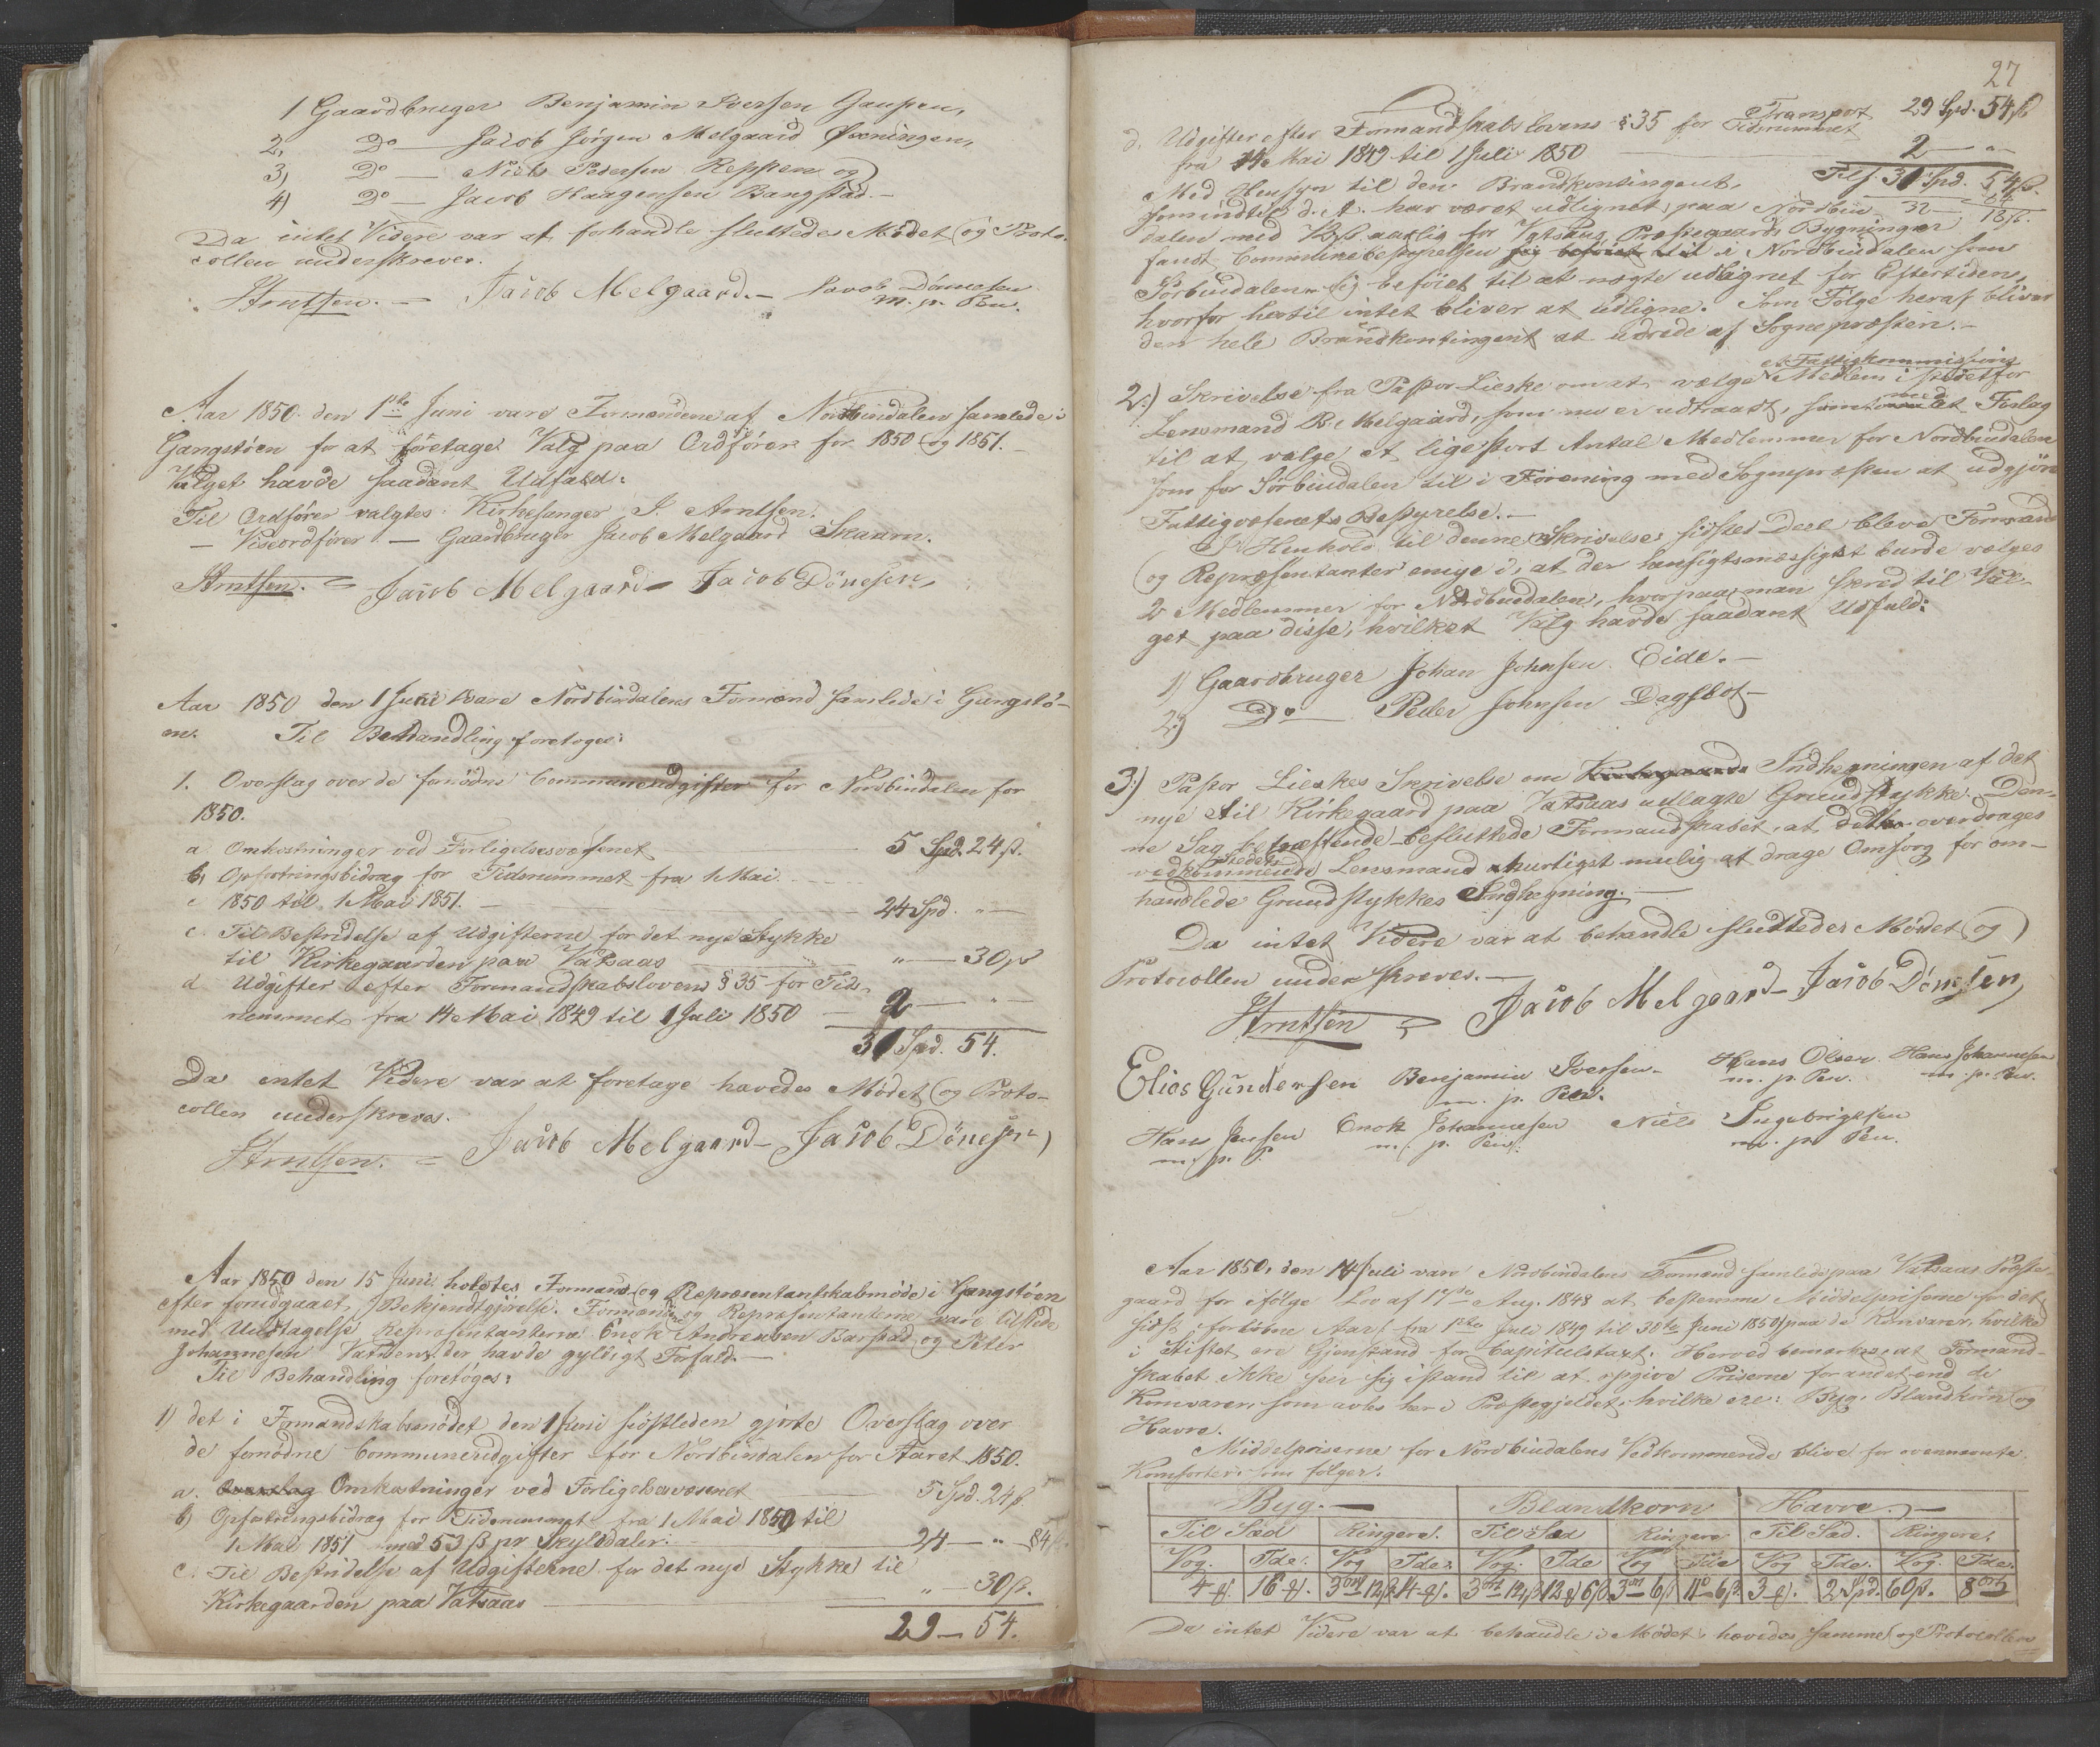 1 Gaardbruger Benjamin Iversen Gaupen,
2, Do — Jacob Jörgen Melgaard Øxningen,
3) Do — Niels Pedersen Reppen og
4) Do — Jacob Haagensen Bangstad. —
Da intet Videre var at forhandle sluttedes Mödet og Proto-
collen underskreves.
Arntsen. — Jacob Melgaard. — Jacob Dönnesen
m. p. Pen.
Aar 1850 den 1ste Juni vare Formændene af Nordbindalen samlede i
Gangstöen for at foretage Valg paa Ordförer for 1850 og 1851. —
Valget havde saadant Udfald:
Til Ordförer valgtes Kirkesanger I. Arntsen.
— Viseordförer — Gaardbruger Jacob Melgaard Skaarn.
Arntsen. = Jacob Melgaard — Jacob Dönesen,
Aar 1850 den 1 Juni vare Nordbindalens Formænd samlede i Gangstö-
en. Til Behandling foretoges:
1. Overslag over de fornödne Communeudgifter for Nordbindalen for
1850.
a Omkostninger ved Forligelsesvæsenet — 5 Spd. 24 ß.
b, Opfostringsbidrag for Tidsrummet fra 1 Mai
1850 til 1 Mai 1851. — 24 Spd. " —
c. Til Bestridelse af Udgifterne for det nye Stykke
til Kirkegaarden paa Vatsaas — " — 30 ß
d Udgifter efter Formandskabslovens § 35 for Tids-
rummet fra 14 Mai 1849 til 1 Juli 1850 — 2 — " —
31 Spd. 54.
Da intet Videre var at foretage hævedes Mödet og Proto-
collen underskreves.
Arntsen. = Jacob Melgaard — Jacob Dönesen)
Aar 1850 den 15 Juni holdtes Formands og Repræsentantskabmöde i Gangstöen
efter forudgaaet Bekjendtgjörelse. Formænd og Repræsentanterne vare tilstede
med Undtagelse Repræsentanterne Enok Andreasen Barstad og Peter
Johannesen Vatnen, der havde gyldigt Forfald. —
Til Behandling foretoges:
1) det i Formandskabsmödet den 1 Juni sidstleden gjorte Overslag over
de fornödne Communeudgifter for Nordbindalen for Aaret 1850.
a. Overslag Omkostninger ved Forligelsesvæsenet — 5 Spd. 24 ß.
b) Opfostringsbidrag for Tidsrummet fra 1 Mai 1850 til
1 Mai 1851 med 53 ß pr Skylddaler: — 24 — " —
c. Til Bestridelse af Udgifterne for det nye Stykke til
Kirkegaarden paa Vatsaas — " — 30 ß.
29 — 54.
27
Transport 29 Spd. 54 ß
d. Udgifter efter Formandskabslovens § 35 for Tidsrummet
fra 14 Mai 1849 til 1 Juli 1850 — 2 — " —
Tils. 31 Spd. 54 ß.
Med Hensyn til den Brandkontingent,
som indtil d. A. har været udlignet paa Nordbin-
dalen med aarlig for Vatsaas Præstegaards Bygninger
fandt Communebestyrelsen sig beföiet til i Nordbindalen som
Sörbindalen sig beföiet til at nægte udlignet for Eftertiden,
hvorfor hertil intet bliver at udligne. Som Fölge heraf bliver
den hele Brandkontingent at udrede af Sognepræsten. —
et Fattigkommissions
2.) Skrivelse fra Pastor Lieske om at vælge Medlem i stedet for
Lensmand B. Melgaard, som nu er udtraadt, samt med et Forslag
til at vælge et lige stort Antal Medlemmer for Nordbindalen
som for Sörbindalen til i Forening med Sognepræsten at udgjöre
Fattigvæsenets Bestyrelse. —
I Henhold til denne Skrivelses sidste Deel bleve Formænd
og Repræsentanter enige i, at der hensigtsmæssigst burde vælges
2 Medlemmer for Nordbindalen, hvorpaa man skred til Val-
get paa disse, hvilket Valg havde saadant Udfald:
1) Gaardbruger Johan Johnsen Eide. —
2) Do — Peder Johnsen Dagslot —
3.) Pastor Lieskes Skrivelse om Kirkegaards Indhegningen af det
nye til Kirkegaard paa Vatsaas udlagte Grundstykke. Den-
ne Sag betræffende besluttede Formandskabet, at det overdrages
Stedets
vedkommende Lensmand hurtigst mulig at drage Omsorg for om-
handlede Grundstykkes Indhegning. —
Da intet Videre var at behandle sluttedes Mödet og
Protocollen underskreves. —
Arntsen = Jacob Melgaard — Jacob Dönesen,
Elias Gundersen Benjamin Iversen — Hans Olsen Hans Johannesen
m. p. Pen. m. p. Pen. m. p. Pen.
Hans Jensen Enok Johannesen Niels Ingebrigtsen
m. p. P. m. p. Pen. m. p. Pen.
Aar 1850, den 14 Juli vare Nordbindalens Formænd samlede paa Vatsaas Præste-
gaard for ifölge Lov af 17de Aug. 1848 at bestemme Middelpriserne for det
sidst forlöbne Aar (fra 1ste Juli 1849 til 30te Juni 1850) paa de Kornvarer, hvilke
i Stiftet ere Gjenstand for Capitulstaxt. Herved bemærkes, at Formand-
skabet ikke seer sig istand til at opgive Priserne for andet end de
Kornvarer, som avles her i Præstegjeldet, hvilke ere: Byg, Blandkorn og
Havre.
Middelpriserne for Nordbindalens Vedkommende blive for ovennævnte
Kornsorter som fölger.
Byg. — Blandkorn Havre. —
Til Sæd Ringere. Til Sæd Ringere Til Sæd. Ringere.
Vog. Tde. Vog Tde. Vog. Tde Vog Tde Vog Tde. Vog. Tde.
4 ℔. 16 ℔. 3 ort 12 ß 14 ℔. 3 ort 12 ß 12 ℔ 6 ß 3 ort 6 ß 11 6 ß. 3 ℔. 2 Spd. 60 ß. 8 ort
Da intet Videre var at behandle i Mödet hævedes samme og Protocollen